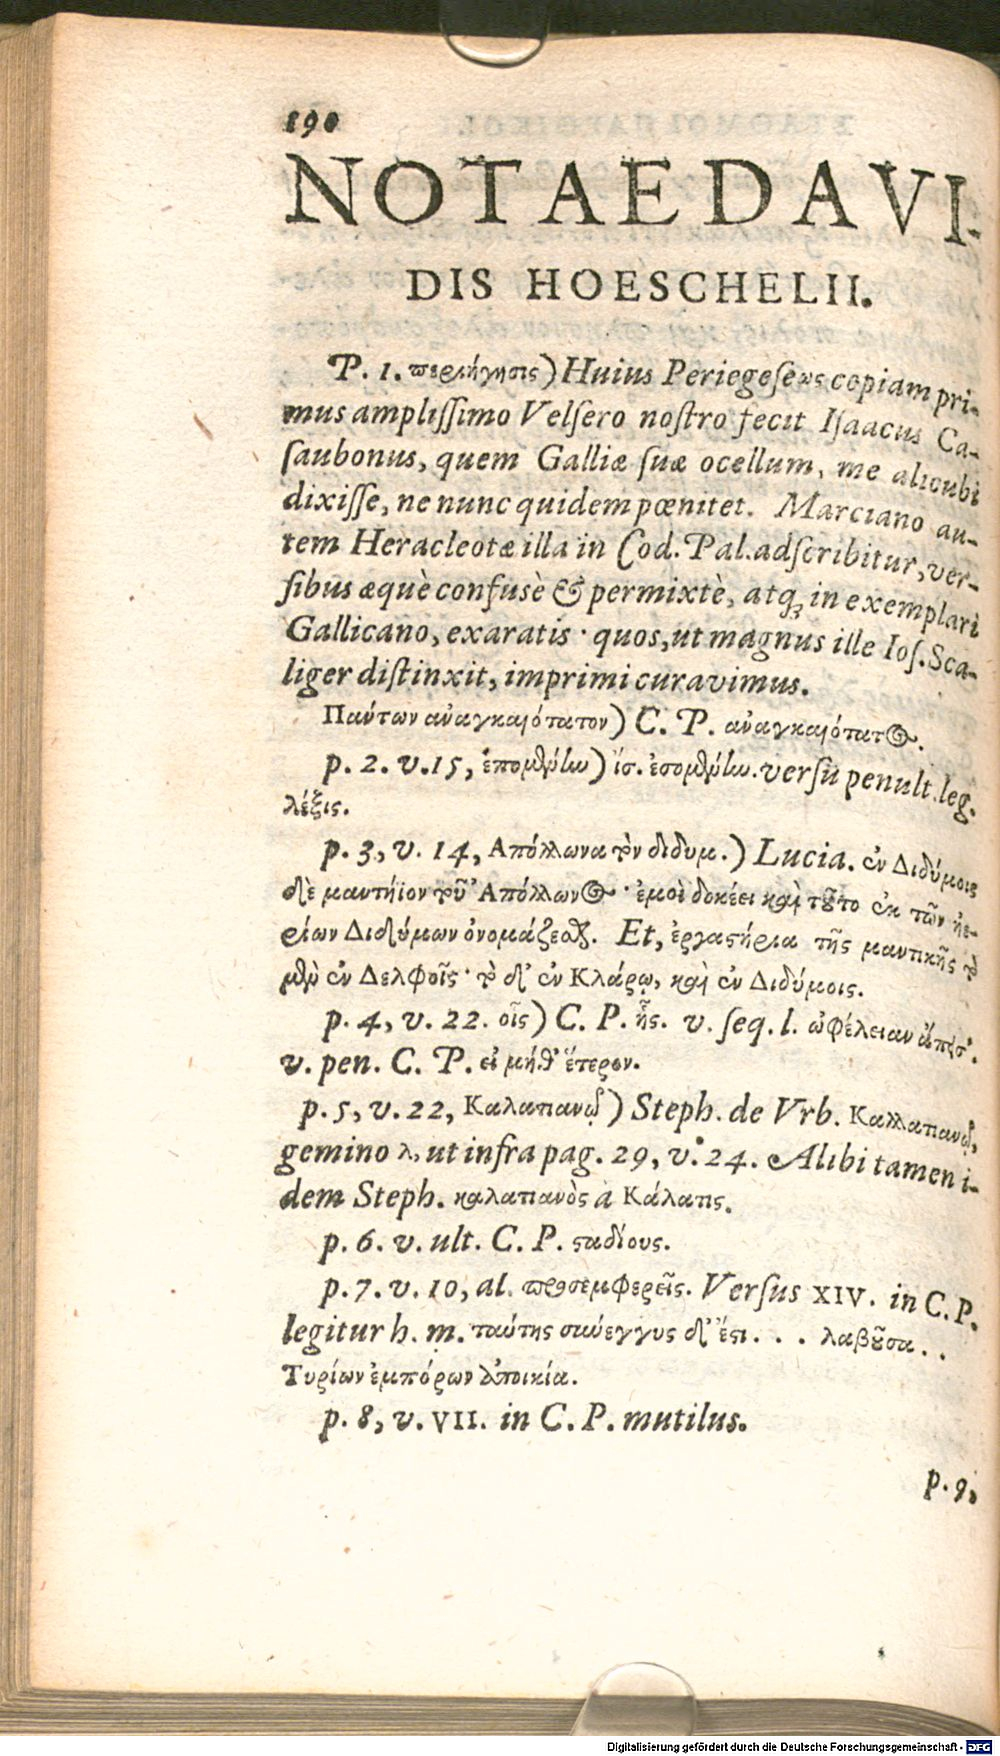 190
NOTAE DAVI-
DIS HOESCHELII.
P. 1. περιήγησις) Huius Periegeseως copiam pri-
mus amplissimo Velsero nostro fecit Isaacus Ca-
saubonus, quem Galliæ suæ ocellum, me alicubi
dixisse, ne nunc quidem pœnitet. Marciano au-
tem Heracleotæ illa in Cod. Pal. adscribitur, ver-
sibus æquè confusè & permixtè, atq; in exemplari
Gallicano, exaratis· quos, ut magnus ille Ios. Sca-
liger distinxit, imprimi curavimus.
Πάντων ἀναγκαιότατον) C. P. ἀναγκαιότατος.
p. 2. v. 15, ἑπομένην) ἴσ. ἐσομένην. versu penult. leg.
λέξις.
p. 3, v. 14, Απόλλωνα τὸν διδυμ.) Lucia. ἐν Διδύμοις
δὲ μαντήϊον τοῦ Ἀπόλλωνος· ἐμοὶ δοκέει καὶ τοῦτο ἐκ τῶν ἠε-
ρίων Διδύμων ὀνομάζεσθαι. Et, ἐργαστήρια τῆς μαντικῆς τὸ
μὲν ἐν Δελφοῖς· τὸ δ' ἐν Κλάρῳ, καὶ ἐν Διδύμοις.
p. 4, v. 22. οἷς) C. P. ἧς. v. seq. l. ὠφέλειαν
v. pen. C. P. εἰ μήθ' ἕτερον.
p. 5, v. 22, Καλατιανῷ) Steph. de Vrb. Καλλατιανῷ,
gemino λ, ut infra pag. 29, v. 24. Alibi tamen i-
dem Steph. καλατιανὸς à Κάλατις.
p. 6. v. ult. C. P. σταδίους.
p. 7. v. 10, al. προσεμφερεῖς. Versus XIV. in C. P.
legitur h. m. ταύτης σύνεγγυς δ' ἔστι . . . λαβοῦσα . .
Τυρίων ἐμπόρων ἀποικία.
p. 8, v. VII. in C. P. mutilus.
p. 9,
Digitalisierung gefördert durch die Deutsche Forschungsgemeinschaft - DFG